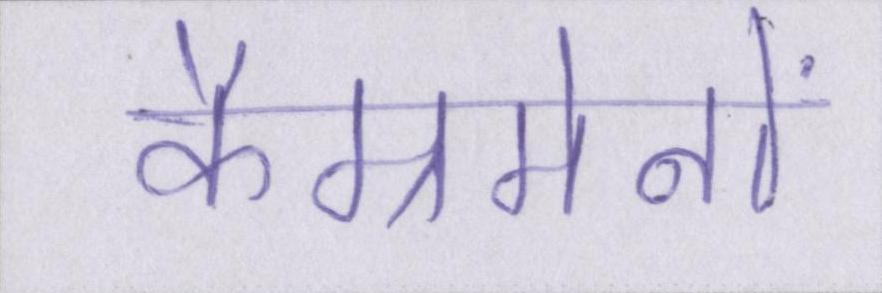 कैम्रमेनों